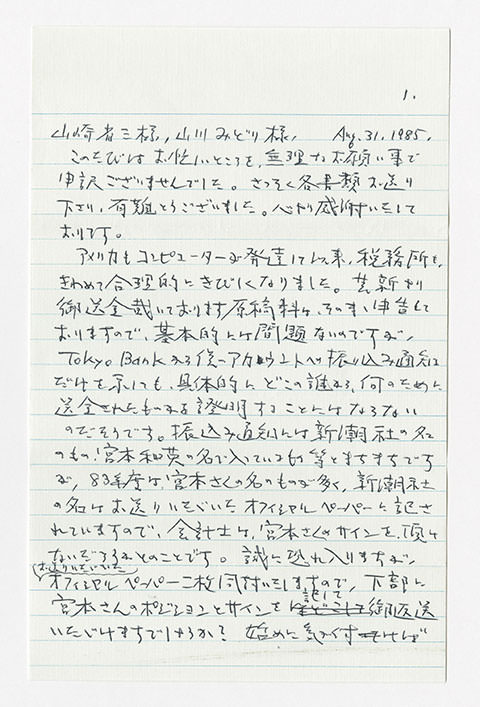 1.
山崎省三様，山川みどり様， Aug. 31. 1985.
このたびはお忙しいところを，無理なお願い事で
申訳ございませんでした。さっそく各書類お送り
下さり，有難とうございました。心から感謝いたして
おります。
アメリカもコンピューターが発達して以来，税務所も，
きわめて合理的にきびしくなりました。芸新より
御送金戴いております原稿料は，そのまゝ申告して
おりますので，基本的には問題ないのですが，
Tokyo Bankから僕のアカウントへの振り込み通知は
だけを示しても，具体的に，どこの誰から，何のために
送金されたものかを證明することにはならない
のだそうです。振込み通知には新潮社の名
のもの，宮本和英の名で入っているもの等とまちまちです
が，83年度は，宮本さんの名のものが多く，新潮社
の名はお送りいただいたオフィシャルペーパーに記さ
れていますので，会計士は，宮本さんのサインを，頂け
ないだろうかとのことです。誠に恐れ入りますが，
お送りいただいた
オフィシャルペーパー二枚同封いたしますので，下部に
宮本さんのポジションとサインを記して御返送
いただけますでしょうか？ 始めに気が付けば